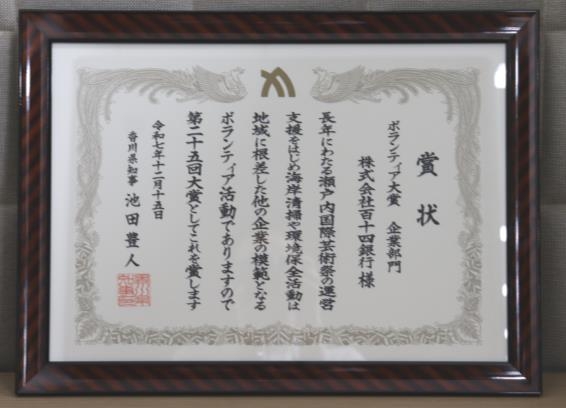 賞状
ボランティア大賞 企業部門
株式会社百十四銀行様
長年にわたる瀬戸内国際芸術祭の運営
支援をはじめ海岸清掃や環境保全活動は
地域に根差した他の企業の模範となる
ボランティア活動でありますので
第二十五回大賞としてこれを賞します
令和七年十二月十五日
香川県知事 池田豊人